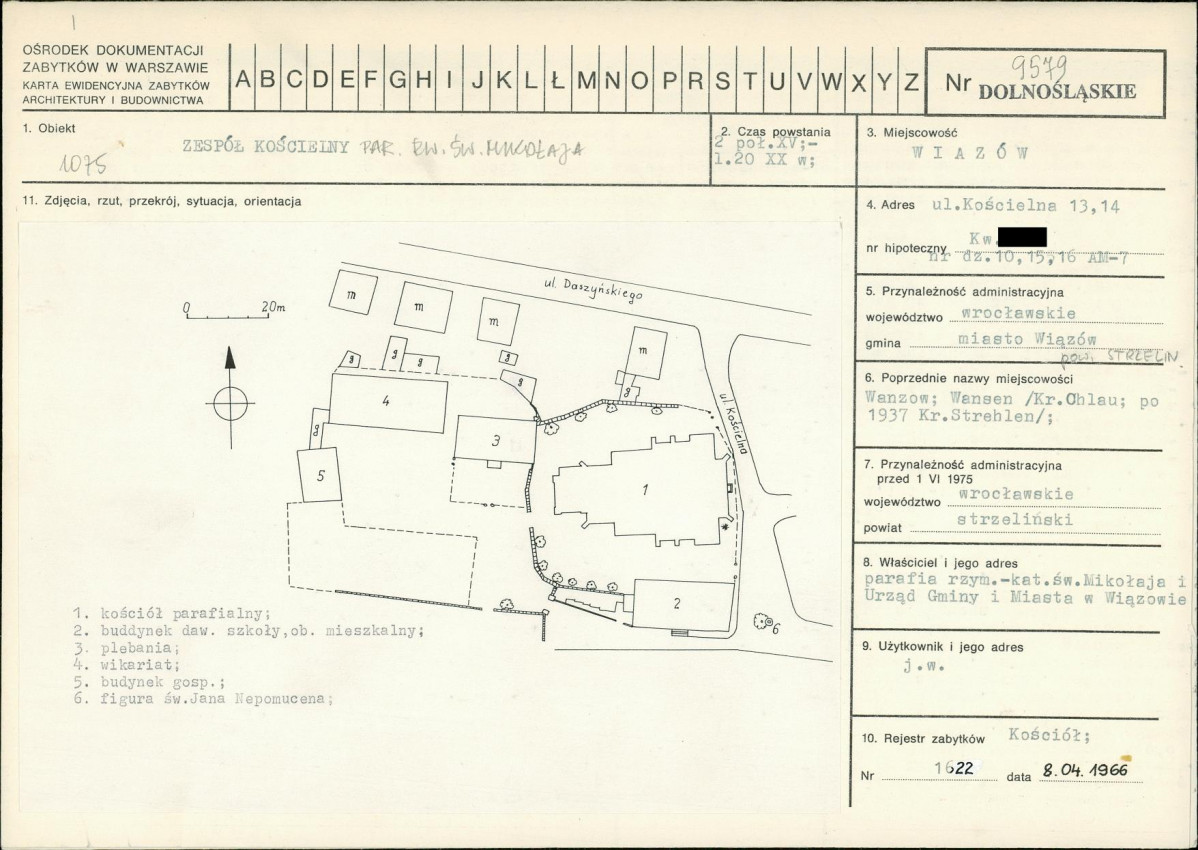 1
OŚRODEK DOKUMENTACJI
ZABYTKÓW W WARSZAWIE
KARTA EWIDENCYJNA ZABYTKÓW
ARCHITEKTURY I BUDOWNICTWA
A B C D E F G H I J K L Ł M N O P R S T U V W X Y Z
Nr 9579
DOLNOŚLĄSKIE
1. Obiekt
ZESPÓŁ KOŚCIELNY PAR. P.W. ŚW. MIKOŁAJA
1075
2. Czas powstania
2 poł.XV;-
1.20 XX w;
3. Miejscowość
WIAZÓW
11. Zdjęcia, rzut, przekrój, sytuacja, orientacja
4. Adres ul.Kościelna 13,14
nr hipoteczny Kw.
nr dz.10,15,16 AM-7
5. Przynależność administracyjna
województwo wrocławskie
gmina miasto Wiązów
pow. STRZELIN
6. Poprzednie nazwy miejscowości
Wanzow; Wansen /Kr.Ohlau; po
1937 Kr.Strehlen/;
7. Przynależność administracyjna
przed 1 VI 1975
województwo wrocławskie
powiat strzeliński
8. Właściciel i jego adres
parafia rzym.-kat.św.Mikołaja i
Urząd Gminy i Miasta w Wiązowie
9. Użytkownik i jego adres
j.w.
10. Rejestr zabytków Kościół;
Nr 1622 data 8.04.1966
ul. Daszyńskiego
0 20m
m
m
m
m
g
g
g
g
g
g
g
4
3
5
1
2
6
ul. Kościelna
1. kościół parafialny;
2. buddynek daw. szkoły,ob. mieszkalny;
3. plebania;
4. wikariat;
5. budynek gosp.;
6. figura św.Jana Nepomucena;